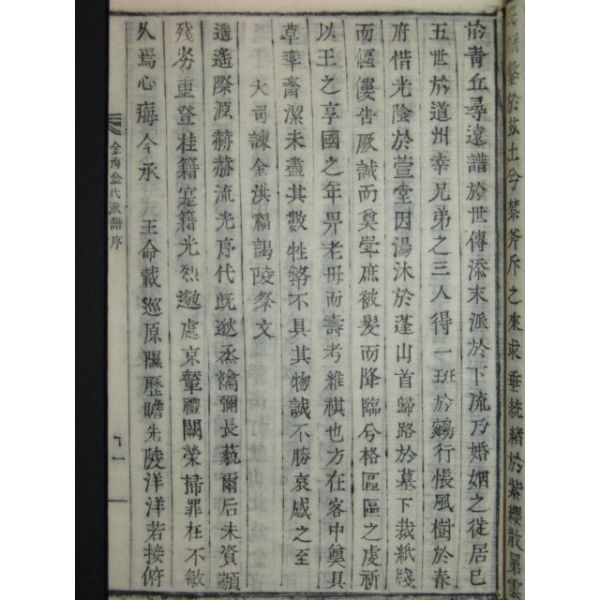 於青丘尋遠譜於世傳添末派於下流乃婚姻之從居已
五世於道州幸兄弟之三人得一班於鵷行悵風樹於春
府惜光陰於萱堂因湯沐於蓬山首歸路於墓下裁紙牋
而傴僂告厥誠而奠斝庶被髮而降臨兮格區區之虔祈
以王之享國之年畀老母而壽考維祺也方在客中奠具
草率齋潔未盡其數牲幣不具其物誠不勝哀感之至
大司諫金洪福謁陵祭文
遙遙際源赫赫流光序代旣逖烝禴彌長藐爾后未資顓
殘劣重登桂籍寔籍光烈邈處京輦禮闕榮掃罪在不敏
久焉心痗今承 王命載巡原隰歷瞻先陵洋洋若接俯
金海金氏派譜序